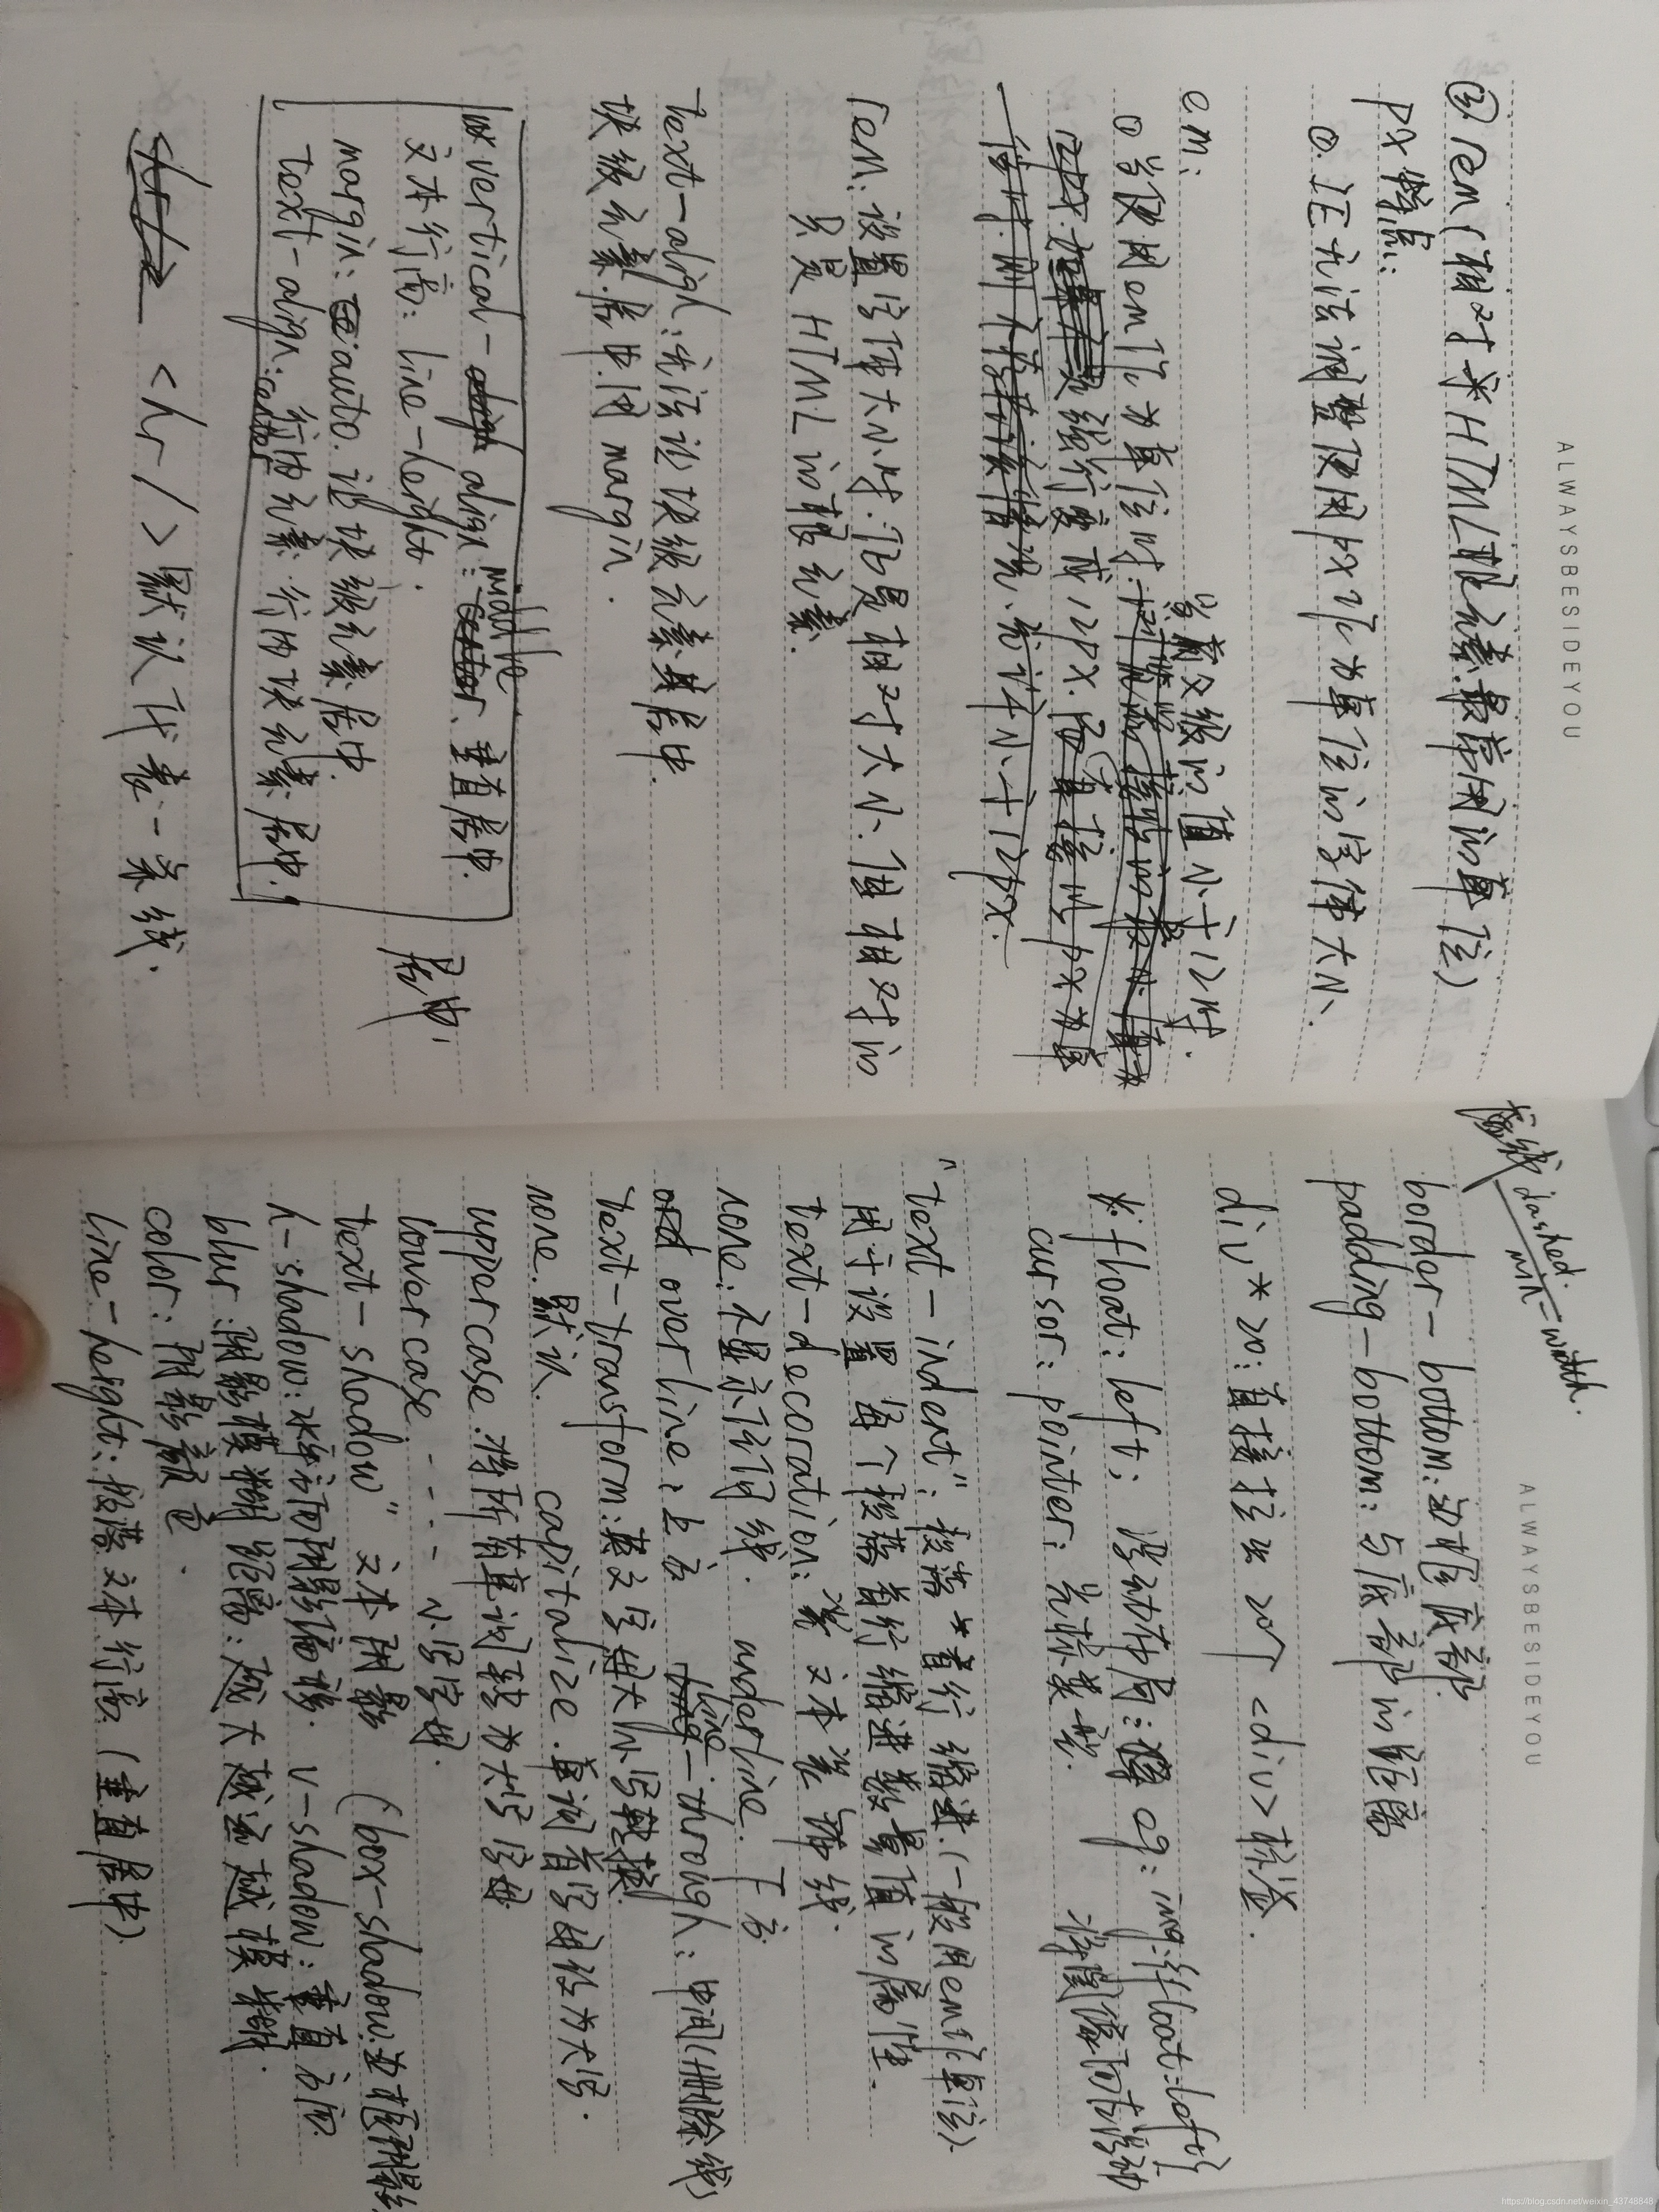 ALWAYSBESIDEYOU
③ rem(相对于HTML根元素.最常用的单位)
px 特点:
①.IE无法调整使用px作为单位的字体大小.
em:
当父级的值小于12时.
①当使用em作为单位时.
rem:设置字体大小时.它是相对大小、但相对的
只是HTML的根元素.
text-align:无法让块级元素其居中.
块级元素居中.用margin.
vertical-align:middle、垂直居中.
文本行高:line-height.
margin:auto.让块级元素居中.
text-align:center 行内元素 行内块元素居中.
居中
<hr/>默认代表一条线.
ALWAYSBESIDEYOU
虚线 dashed.
min-width.
border-bottom:边框底部
padding-bottom:与底部的距离
div*20:直接打出20个<div>标签.
float:left; 浮动布局: eg:img:{float:left;}
cursor:pointer; 光标类型. 将图像向左浮动
"text-indent":段落*首行缩进.(一般用em作单位)
用于设置每个段落首行缩进数量值的属性.
text-decoration:炎文本装饰线.
none.不显示任何线. underline.下方
overline:上方 line-through:中间(删除线)
text-transform:英文字母大小写转换
none.默认. capitalize.单词首字母改为大写.
uppercase.将所有单词转为大写字母
lowercase. - - - 小写字母.
text-shadow" 文本阴影 (box-shadow:边框阴影
h-shadow:水平方向阴影偏移. v-shadow:垂直方向.
blur:阴影模糊距离:越大越远越模糊.
color:阴影颜色.
line-height:段落文本行高.(垂直居中)
https://blog.csdn.net/weixin_43748848